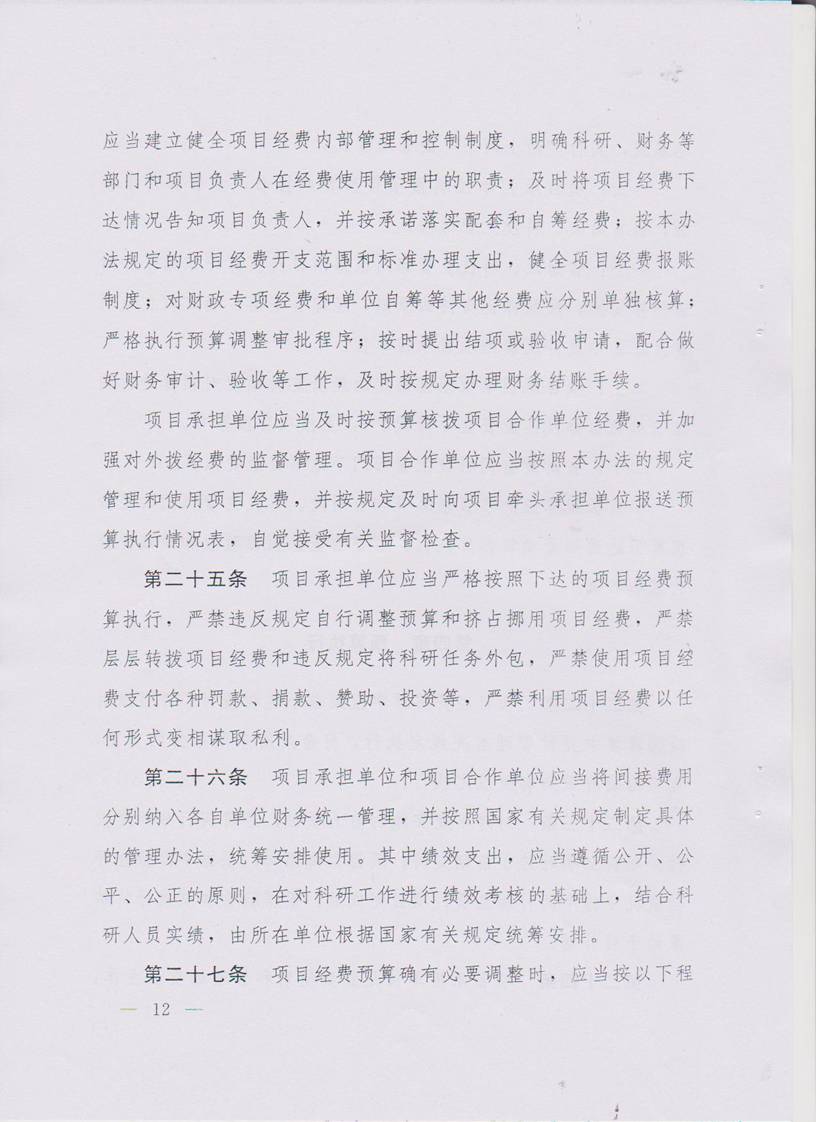 应当建立健全项目经费内部管理和控制制度，明确科研、财务等
部门和项目负责人在经费使用管理中的职责；及时将项目经费下
达情况告知项目负责人，并按承诺落实配套和自筹经费；按本办
法规定的项目经费开支范围和标准办理支出，健全项目经费报账
制度；对财政专项经费和单位自筹等其他经费应分别单独核算；
严格执行预算调整审批程序；按时提出结项或验收申请，配合做
好财务审计、验收等工作，及时按规定办理财务结账手续。
项目承担单位应当及时按预算核拨项目合作单位经费，并加
强对外拨经费的监督管理。项目合作单位应当按照本办法的规定
管理和使用项目经费，并按规定及时向项目牵头承担单位报送预
算执行情况表，自觉接受有关监督检查。
第二十五条　项目承担单位应当严格按照下达的项目经费预
算执行，严禁违反规定自行调整预算和挤占挪用项目经费，严禁
层层转拨项目经费和违反规定将科研任务外包，严禁使用项目经
费支付各种罚款、捐款、赞助、投资等，严禁利用项目经费以任
何形式变相谋取私利。
第二十六条　项目承担单位和项目合作单位应当将间接费用
分别纳入各自单位财务统一管理，并按照国家有关规定制定具体
的管理办法，统筹安排使用。其中绩效支出，应当遵循公开、公
平、公正的原则，在对科研工作进行绩效考核的基础上，结合科
研人员实绩，由所在单位根据国家有关规定统筹安排。
第二十七条　项目经费预算确有必要调整时，应当按以下程
— 12 —